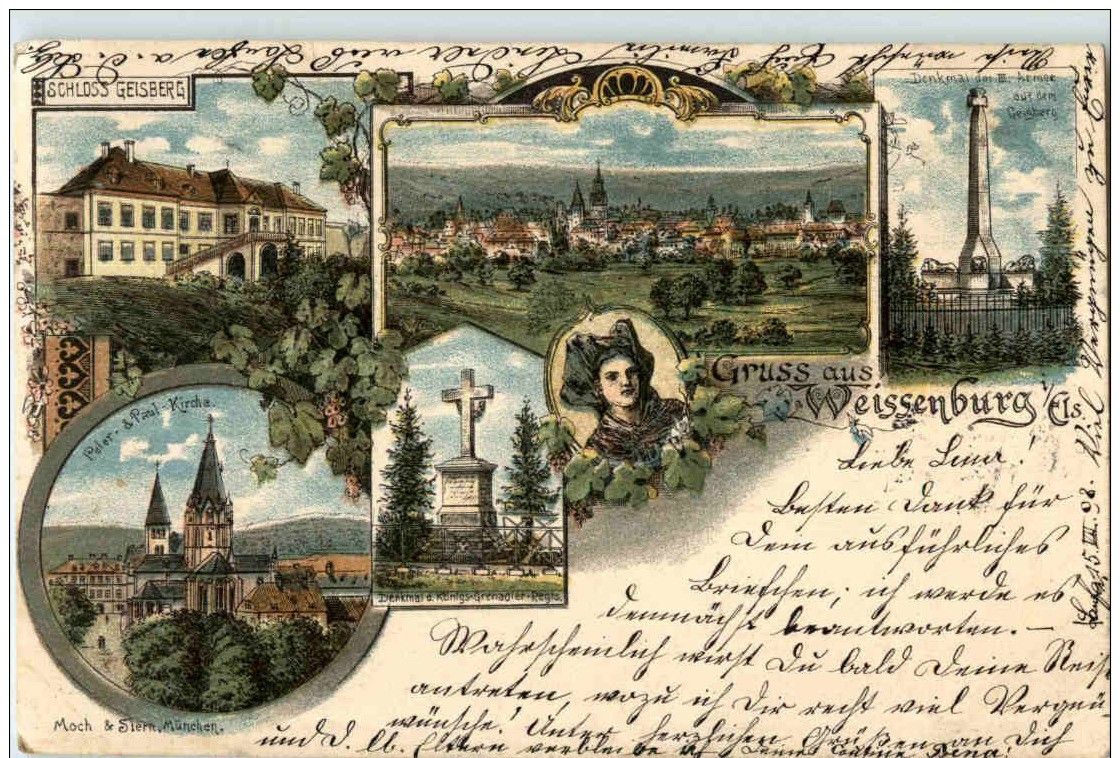 SCHLOSS GEISBERG
Denkmal der III. Armee
auf dem
Geisberg
Gruss aus
Weissenburg i/Els.
Peter- & Paul-Kirche.
Denkmal d. Königs-Grenadier-Regts.
Moch & Stern, München.
Liebe Lina!
Besten Dank für
Dein ausführliches
Briefchen; ich werde es
demnächst beantworten. –
Wahrscheinlich wirst Du bald Deine Reise
antreten, wozu ich Dir recht viel Vergnü-
wünsche! Unter herzlichen Grüßen an Dich
und d. lb. Eltern verbleibe ich Deine Cousine
Viel Vergnügen zu
Familie